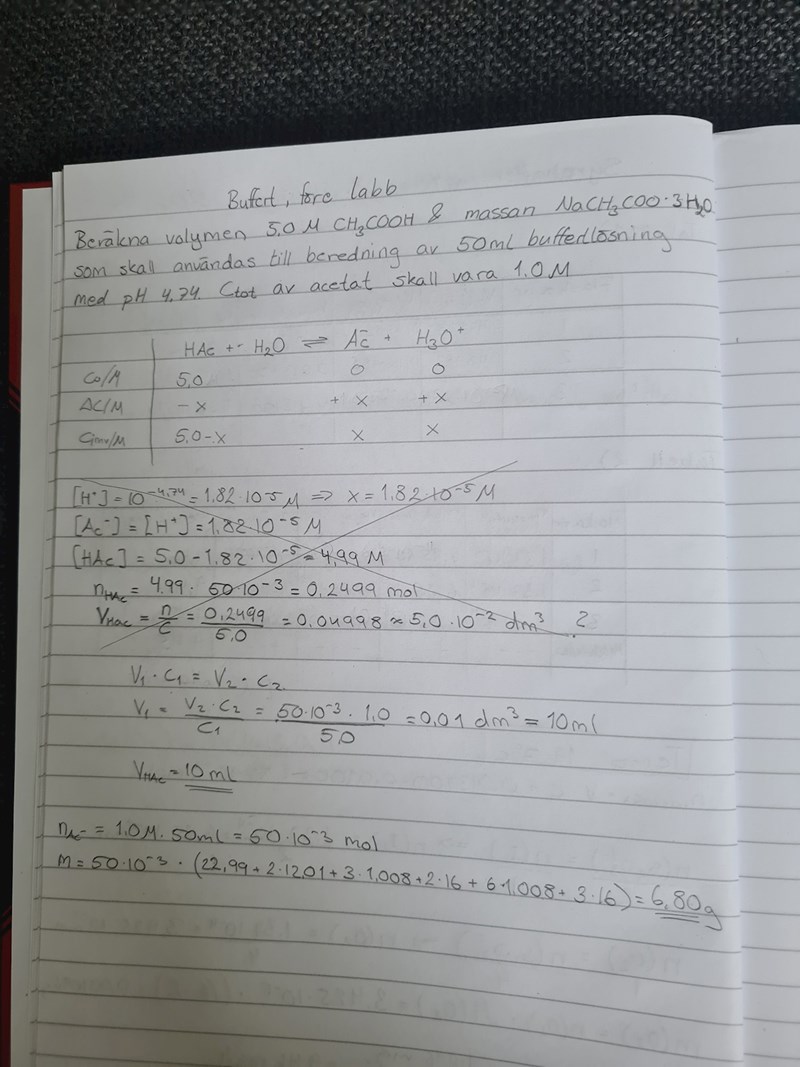 Buffert, före labb
Beräkna volymen 5,0 M CH₃COOH & massan NaCH₃COO·3H₂O
som skall användas till beredning av 50ml buffertlösning
med pH 4,74. Ctot av acetat skall vara 1.0 M
HAc + H₂O ⇌ Ac⁻ + H₃O⁺
C₀/M 5,0 0 0
ΔC/M -x +x +x
Cjmv/M 5,0-x x x
[H⁺] = 10⁻⁴·⁷⁴ = 1,82·10⁻⁵ M ⇒ x = 1,82·10⁻⁵ M
[Ac⁻] = [H⁺] = 1,82·10⁻⁵ M
[HAc] = 5,0 - 1,82·10⁻⁵ = 4,99 M
nHAc = 4,99 · 50·10⁻³ = 0,2499 mol
VHAc = n/C = 0,2499/5,0 = 0,04998 ≈ 5,0·10⁻² dm³ ?
V₁·C₁ = V₂·C₂
V₁ = V₂·C₂/C₁ = 50·10⁻³·1,0/5,0 = 0,01 dm³ = 10ml
VHAc = 10ml
nAc⁻ = 1,0M·50ml = 50·10⁻³ mol
m = 50·10⁻³ · (22,99+2·12,01+3·1,008+2·16+6·1,008+3·16) = 6,80g